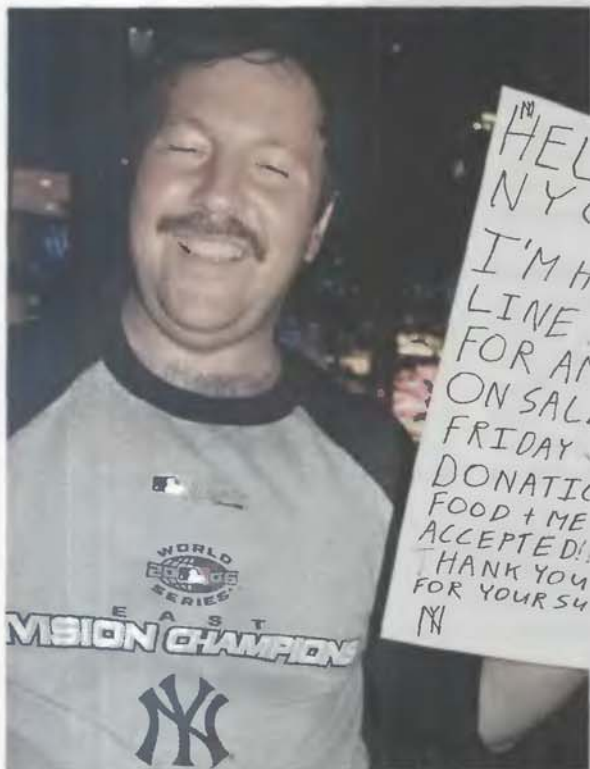 WORLD
2006
SERIES
EAST
VISION CHAMPIONS
NY
NY
HEL
NYC
I'M H
LINE
FOR AN
ON SALE
FRIDAY
DONATIO
FOOD + ME
ACCEPTED!!
THANK YOU
FOR YOUR SU
NY